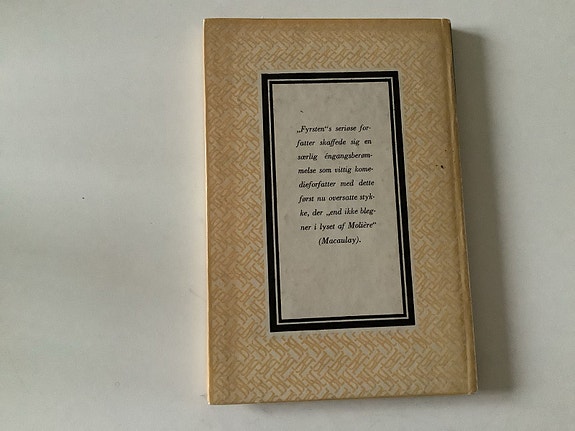 „Fyrsten“s seriøse for-
fatter skaffede sig en
særlig éngangsberøm-
melse som vittig kome-
dieforfatter med dette
først nu oversatte styk-
ke, der „end ikke bleg-
ner i lyset af Molière“
(Macaulay).